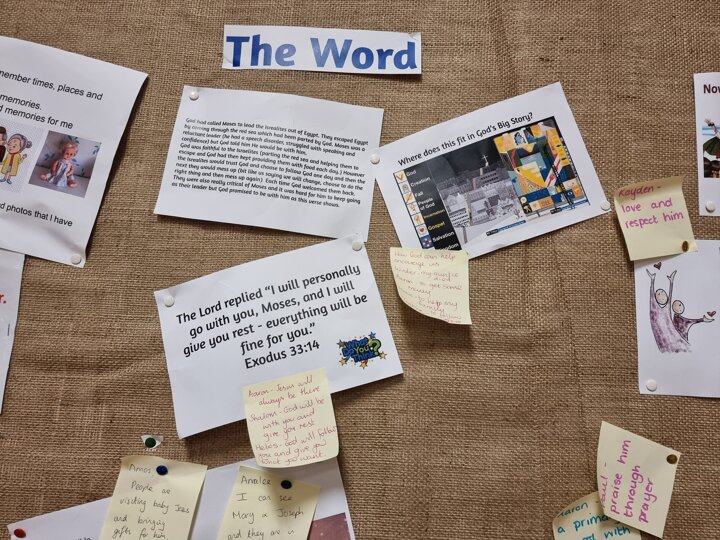 The Word
member times, places and
memories.
d memories for me
d photos that I have
r.
God had called Moses to lead the Israelites out of Egypt. They escaped Egypt
by coming through the red sea which had been parted by God. Moses was a
reluctant leader (he had a speech disorder, struggled with speaking and
confidence) but God told Him He would be with him.
God was faithful to the Israelites (parting the red sea and helping them to
escape and God had then kept providing them with food each day.) However
the Israelites would trust God and choose to follow God one day and then the
next they would mess up (bit like us saying we will change, choose to do the
right thing and then mess up again). Each time God welcomed them back.
They were also really critical of Moses and it was hard for him to keep going
as their leader but God promised to be with him as this verse shows.
Where does this fit in God's Big Story?
God
Creation
Fall
People
of God
Incarnation
Gospel
Salvation
Kingdom
How God can help
encourage us
my
died
to get some
money
to help my
family
The Lord replied "I will personally
go with you, Moses, and I will
give you rest - everything will be
fine for you."
Exodus 33:14
What
Do You
Think?
Aaron - Jesus will
always be there
Shalom - God will be
with you and
give you rest
God will follow
you and give you
what you want.
Amos
People are
visiting baby Jesus
and bringing
gifts for him
I can see
Mary & Joseph
and they are in
No
Kayden -
love and
respect him
praise him
through
prayer
Aaron.
a prima
with